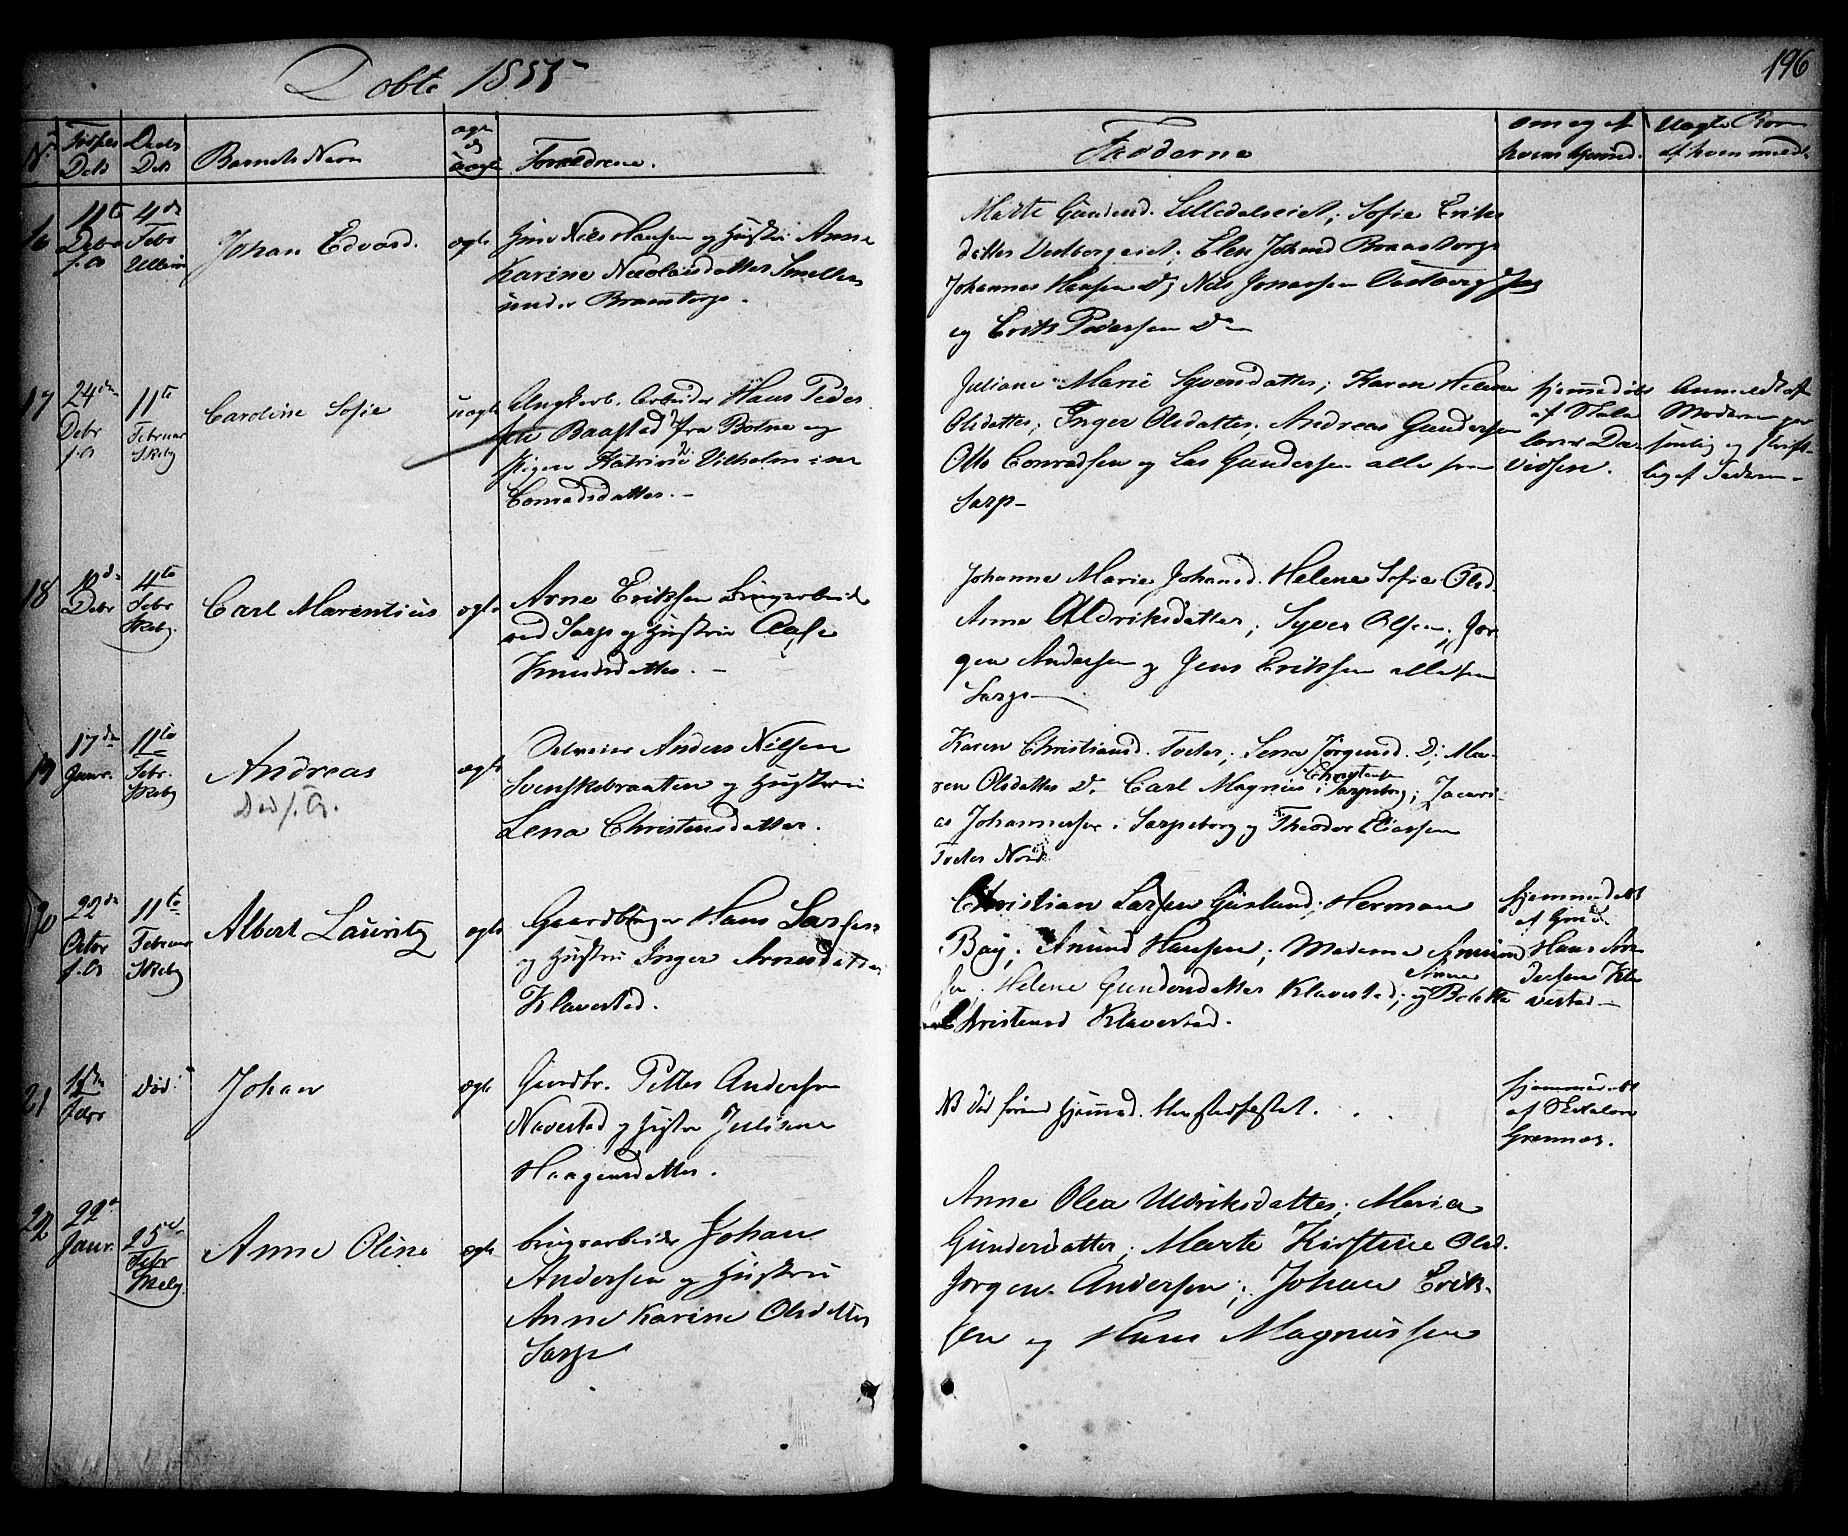 Døbte 1855
196
No Fødsels Dato Daabs Dato Barnets Navn ægte ell uægte Forældrene.
Fadderne
om og af hvem hjemmed. Uægte Børn af hvem meldt
16 11te Debr f.A. 4de Febr Ullerø Johan Edvard. ægte
Nils Hansen og Hustru Anne
Karine Nicolaisdatter
under Brandstorp.
Marte Gunnersd. Lilledalseiet; Sofie Eriks
datter Vestbergeiet; Elen Johansd Brandstorp
Johannes Hansen Do; Nils Jonassen Vestberg
og Erik Pedersen Do
17 24de Debr f.A. 11te Februar Skeby Caroline Sofie uægte
Ungkarl. Arbeider Hans Peder
sen Baastad fra Botne og
Pigen Katrine Vilhelmine
Conradsdatter.
Juliane Marie Syversdatter; Karen Helene
Olsdatter; Inger Olsdatter; Andreas Gundersen
Otto Conradsen og Lars Gundersen alle fra
Sarp
hjemmedøbt
af Skole
lærer Da
vidsen.
Anmeldt af
Moderen per
sonlig og skrift
lig af Faderen
18 10de Debr 4te Febr Skeby Carl Marentius ægte
Arne Eriksen Brugsarbeider
ved Sarp og Hustru
Knudsdatter.
Johanne Marie Johansd. Helene Sofie Olsd.
Anne Uldriksdatter; Syver Olsen; Jør
gen Andersen og Jens Eriksen alle fra
Sarp
19 17de Janr. 11te Febr. Skeby Andreas ægte
Død
Selveier Anders Nilsen
Svenskebraaten og Hustru
Lena Christensdatter.
Karen Christiansd. Tveter; Lena Jørgensd. Do; Ma
ren Olsdatter Do. Carl Magnus Christensen i Sarpsborg; Zacari
as Johannesen i Sarpsborg og Theodor Eliasen
Tveter Nord
20 22de Octbr f.A. 11te Februar Skeby Albert Lauritz ægte
Gaardbruger Hans Larsen
og Hustru Inger Arnesdatter
Klavestad.
Christian Larsen Güslund; Herman
Bøy; Amund Hansen; Maderne Amund
Helene Gundersdatter Klavestad; og Anne Bolette
Christensd Klavestad.
hjemmedøbt
af Gmd.
Hans An
dersen Kla
vestad
21 12de Febr Død Johan ægte
Gaardbr. Petter Andersen
Navestad og Hustru Juliane
Haagensdatter.
NB Død førend Hjemmed. blev stadfæstet.
hjemmedøbt
af Skolelærer
Grønnæs.
22 22de Janr. 25de Febr Skeby Anne Oline ægte
brugsarbeider Johan
Andersen og Hustru
Anne Karine Olsdatter
Sarp
Anne Olea Uldriksdatter; Maria
Gundersdatter; Marte Kirstine Olsd.
Jørgen Andersen; Johan Erik
sen og Hans Magnussen